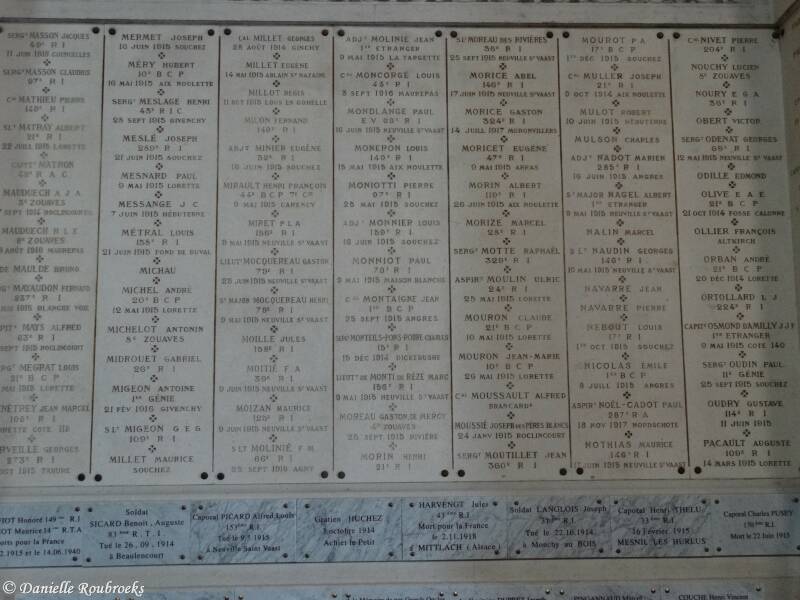 SERGT MASSON JACQUES
49e R I
11 JUIN 1915
SERGT MASSON CLAUDIUS
97e R I
CAL MATHIEU PIERRE
149e R I
SLT MATRAY ALBERT
21e R I
22 JUIL 1915 LORETTE
CAPITE MATRON
R A C
MAUDUECH A J A
3e ZOUAVES
SEPT 1914 ROCLINCOURT
MAUDUECH R L E
8e ZOUAVES
AOUT 1916 MAUREPAS
DE MAULDE BRUNO
SERGT MAYAUDON FERNAND
237e R I
MAI 1915 BLANCHE VOIE
MAYS ALFRED
63e R I
SEPT 1915 ROCLINCOURT
SERGT MEGRAT LOUIS
21e B C P
MAI 1915 LORETTE
JEAN MARCEL
R I
LORETTE COTE
MERVEILLE GEORGES
273e R I
OCT 1915 TAHURE
MERMET JOSEPH
16 JUIN 1915 SOUCHEZ
MÉRY HUBERT
10e B C P
16 MAI 1915 AIX NOULETTE
SERGT MESLAGE HENRI
43e R I C
28 SEPT 1915 GIVENCHY
MESLÉ JOSEPH
289e R I
21 JUIN 1915 SOUCHEZ
MESNARD PAUL
9 MAI 1915 LORETTE
MESSANGE J C
7 JUIN 1915 HÉBUTERNE
MÉTRAL LOUIS
158e R I
21 JUIN 1915 FOND DE BUVAL
MICHAU
MICHEL ANDRÉ
20e B C P
12 MAI 1915 LORETTE
MICHELOT ANTONIN
8e ZOUAVES
MIDROUET GABRIEL
26e R I
MIGEON ANTOINE
1er GÉNIE
21 FÉV 1916 GIVENCHY
SLT MIGEON G E G
109e R I
MILLET MAURICE
SOUCHEZ
CAL MILLET GEORGES
28 AOUT 1914 GINCHY
MILLET EUGENE
14 MAI 1915 ABLAIN ST NAZAIRE
MILLOT REGIS
11 OCT 1915 LOOS EN GOHELLE
MILON FERNAND
149e R I
ADJT MINIER EUGÈNE
52e R I
16 JUIN 1915 SOUCHEZ
MIRAULT HENRI FRANÇOIS
44e B C P
9 MAI 1915 CARENCY
MIRET P L A
156e R I
9 MAI 1915 NEUVILLE ST VAAST
LIEUT MOCQUEREAU GASTON
79e R I
25 JUIN 1915 NEUVILLE ST VAAST
ST MAJOR MOCQUEREAU HENRI
79e R I
9 MAI 1915 NEUVILLE ST VAAST
MOILLE JULES
158e R I
MOITIÉ F A
39e R I
9 JUIN 1915 NEUVILLE ST VAAST
MOIZAN MAURICE
125e R I
9 JUIN 1915 NEUVILLE ST VAAST
S LT MOLINIÉ F M
66e R I
25 SEPT 1915 AGNY
ADJT MOLINIE JEAN
1er ETRANGER
9 MAI 1915 LA TARGETTE
CAL MONCORGÉ LOUIS
43e R I
8 SEPT 1916 MAUREPAS
MONDLANGE PAUL
E V 23e R I
16 JUIN 1915 NEUVILLE ST VAAST
MONERON LOUIS
149e R I
15 MAI 1915 AIX NOULETTE
MONIOTTI PIERRE
97e R I
25 MAI 1915 SOUCHEZ
ADJT MONNIER LOUIS
159e R I
16 JUIN 1915 SOUCHEZ
MONNIOT PAUL
79e R I
9 MAI 1915 MAISON BLANCHE
CAL MONTAIGNE JEAN
1er B C P
25 SEPT 1915 ANGRES
SERGT MONTEILS-PONS-POIRE CHARLES
15e R I
15 DÉC 1914 DICKEBUSHE
LIEUT DE MONTI DE RÉZÉ MARC
156e R I
9 MAI 1915 NEUVILLE ST VAAST
MOREAU GASTON, DE MERCY
4e ZOUAVES
25 SEPT 1915 RIVIÈRE
MORIN HENRI
21e R I
SLT MOREAU DES RIVIÈRES
36e R I
25 SEPT 1915 NEUVILLE ST VAAST
MORICE ABEL
146e R I
17 JUIN 1915 NEUVILLE ST VAAST
MORICE GASTON
324e R I
14 JUILL 1917 MORONVILLERS
MORICET EUGENE
47e R I
9 MAI 1915 ARRAS
MORIN ALBERT
119e R I
26 JUIN 1915 AIX NOULETTE
MORIZE MARCEL
28e R I
SERGT MOTTE RAPHAËL
329e R I
ASPIRT MOULIN ULRIC
24e R I
25 MAI 1915 LORETTE
MOURON CLAUDE
21e B C P
10 MAI 1915 LORETTE
MOURON JEAN-MARIE
10e B C P
26 MAI 1915 LORETTE
CAL MOUSSAULT ALFRED
BRANCARDR
MOUSSIÉ JOSEPH DES PÈRES BLANCS
24 JANV 1915 ROCLINCOURT
SERGT MOUTILLET JEAN
360e R I
MOUROT P A
17e B C P
1er DÉC 1915 SOUCHEZ
CAL MULLER JOSEPH
21e R I
9 OCT 1914 AIX NOULETTE
MULOT ROBERT
10 JUIN 1915 HÉBUTERNE
MULSON CHARLES
ADJT NADOT MARIEN
285e R I
16 JUIN 1915 ANGRES
ST MAJOR NAGEL ALBERT
1er ETRANGER
9 MAI 1915 NEUVILLE ST VAAST
NALIN MARCEL
S LT NAUDIN GEORGES
146e R I
10 MAI 1915 NEUVILLE ST VAAST
NAVARRE JEAN
NAVARRE PIERRE
NEBOUT LOUIS
17e R I
1er OCT 1915 SOUCHEZ
NICOLAS ÉMILE
1er B C P
8 JUILL 1915 ANGRES
ASPIRT NOËL-CADOT PAUL
287e R A
18 NOV 1917 NORDSCHOTE
NOTHIAS MAURICE
146e R I
17 JUIN 1915 NEUVILLE ST VAAST
CAL NIVET PIERRE
204e R I
NOUCHY LUCIEN
8e ZOUAVES
NOURY E G A
36e R I
OBERT VICTOR
SERGT ODENAT GEORGES
69e R I
12 MAI 1915 NEUVILLE ST VAAST
ODILLE EDMOND
OLIVE E A E
21e B C P
21 OCT 1914 FOSSE CALONNE
OLLIER FRANÇOIS
ALTKIRCH
ORBAN ANDRÉ
21e B C P
20 DÉC 1914 LORETTE
ORTOLLARD L J
224e R I
CAPIT OSMOND DAMILLY J J F
1er ETRANGER
9 MAI 1915 COTE 140
SERGT OUDIN PAUL
11e GÉNIE
25 SEPT 1915 SOUCHEZ
OUDRY GUSTAVE
114e R I
11 JUIN 1915
PACAULT AUGUSTE
109e R I
14 MARS 1915 LORETTE
Honoré 149me R.I
Maurice 14me R.T.A
Morts pour la France
1915 et le 14.06.1940
Soldat
SICARD Benoit, Auguste
83me R. T. I.
Tué le 26.09.1914 à
Beaulencourt
Caporal PICARD Alfred Louis
153e R.I
Tué le 9.5.1915
à Neuville Saint Vaast
Gratien HUCHEZ
1 octobre 1914
Achiet le Petit
HARVENGT Jules
43ème R.I.
Mort pour la France
le 2.11.1918
à MITTLACH (Alsace)
Soldat LANGLOIS Joseph
37e R.I
Tué le 22.10.1914
à Monchy au BOIS
Caporal Henri THELU
33e R.I
16 Février 1915
MESNIL LES HURLUS
Caporal Charles PUSEY
150e R.I.
Mort le 22 Juin 1915
COUCHE Henri Vincent
© Danielle Roubroeks